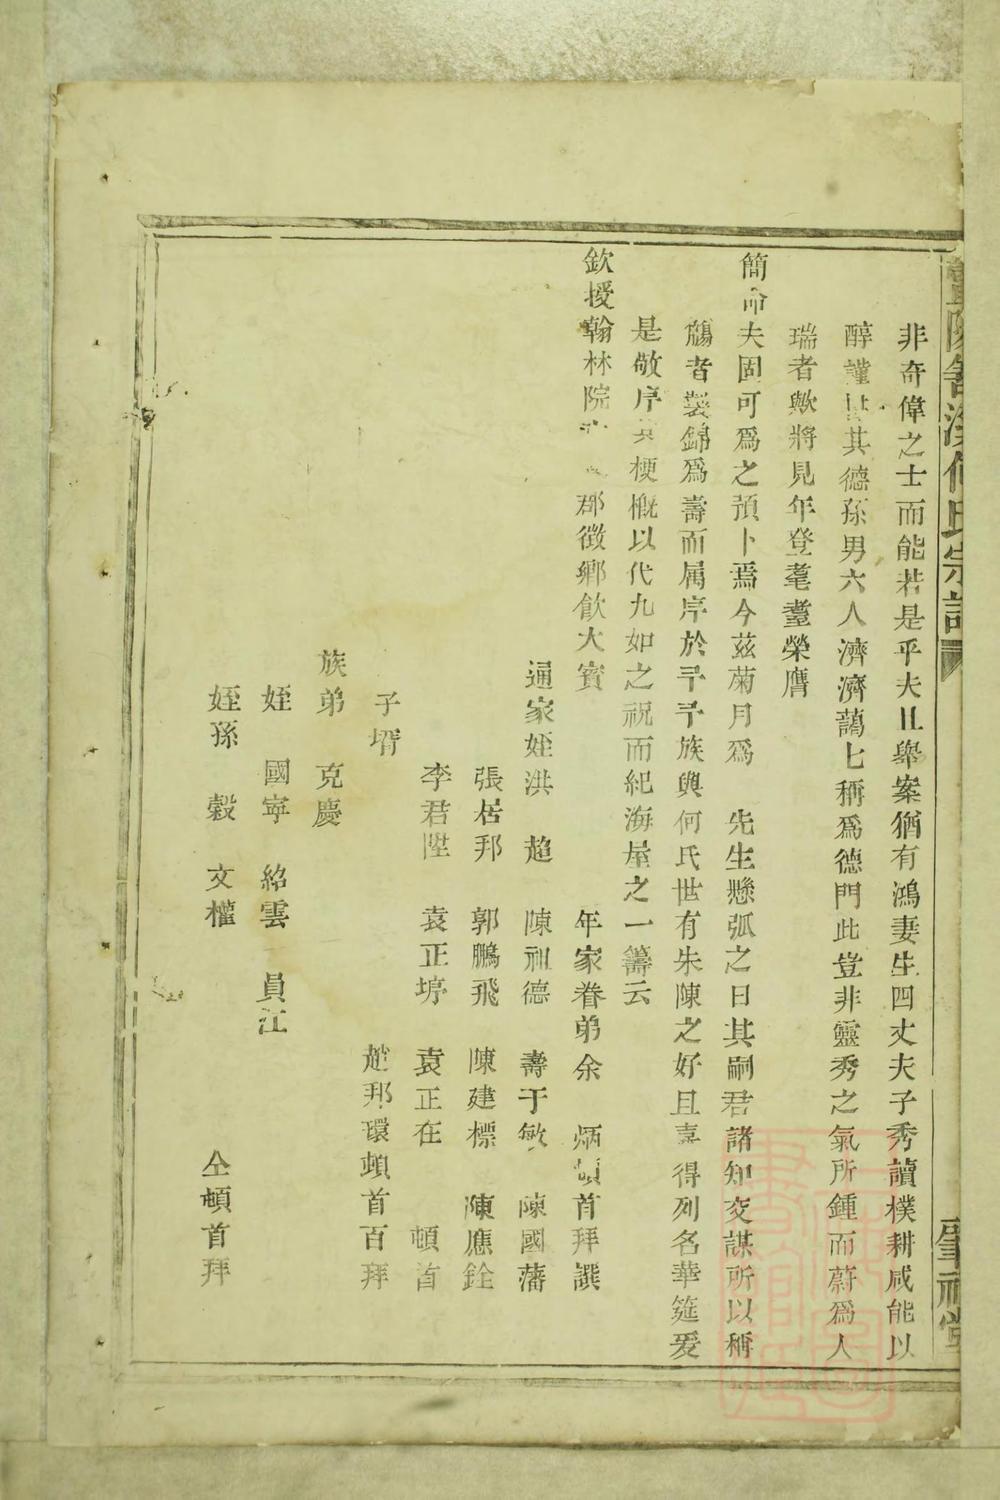 何氏宗譜
肇祠堂
非奇偉之士而能若是乎夫且舉案猶有鴻妻生四丈夫子秀讀樸耕咸能以
醇謹其德孫男六人濟濟藹七稱爲德門此豈非靈秀之氣所鍾而蔚爲人
瑞者歟將見年登耄耋榮膺
簡命夫固可爲之預卜焉今茲菊月爲 先生懸弧之日其嗣君諸知交謀所以稱
觴者製錦爲壽而属序於予予族與何氏世有朱陳之好且喜得列名華筵爰
是敬序其梗概以代九如之祝而紀海屋之一籌云
欽授翰林院 郡徵鄉飲大賓 年家眷弟余 炳 頓首拜譔
通家姪洪 趨 陳祖德 壽于敏 陳國藩
張居邦 郭鵬飛 陳建標 陳應銓
李君陞 袁正垿 袁正在 頓首
子壻 趙邦環頓首百拜
族弟 克慶
姪 國寧 紹雲 員江
姪孫 穀 文權 仝頓首拜